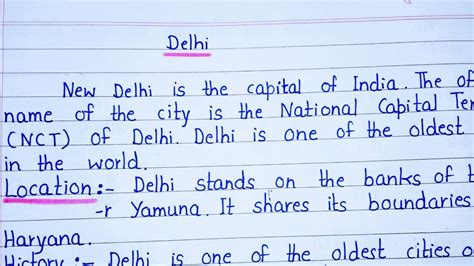 Delhi
New Delhi is the capital of India. The of
name of the city is the National Capital Ter
(NCT) of Delhi. Delhi is one of the oldest
in the world.
Location:- Delhi stands on the banks of t
-r Yamuna. It shares its boundaries
Haryana.
History:- Delhi is one of the oldest cities o